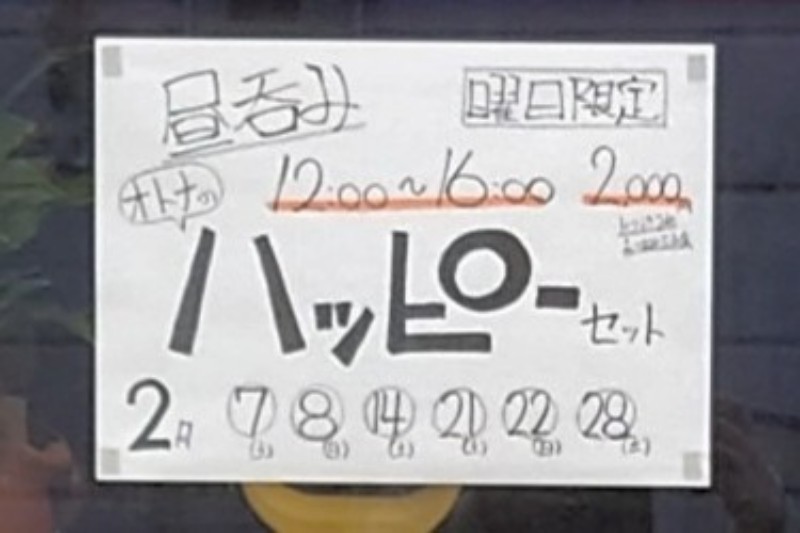 昼呑み
曜日限定
オトナの
12:00~16:00 2,000円
ハッピーセット
2月 7(土) 8(日) 14(土) 21(土) 22(日) 28(土)